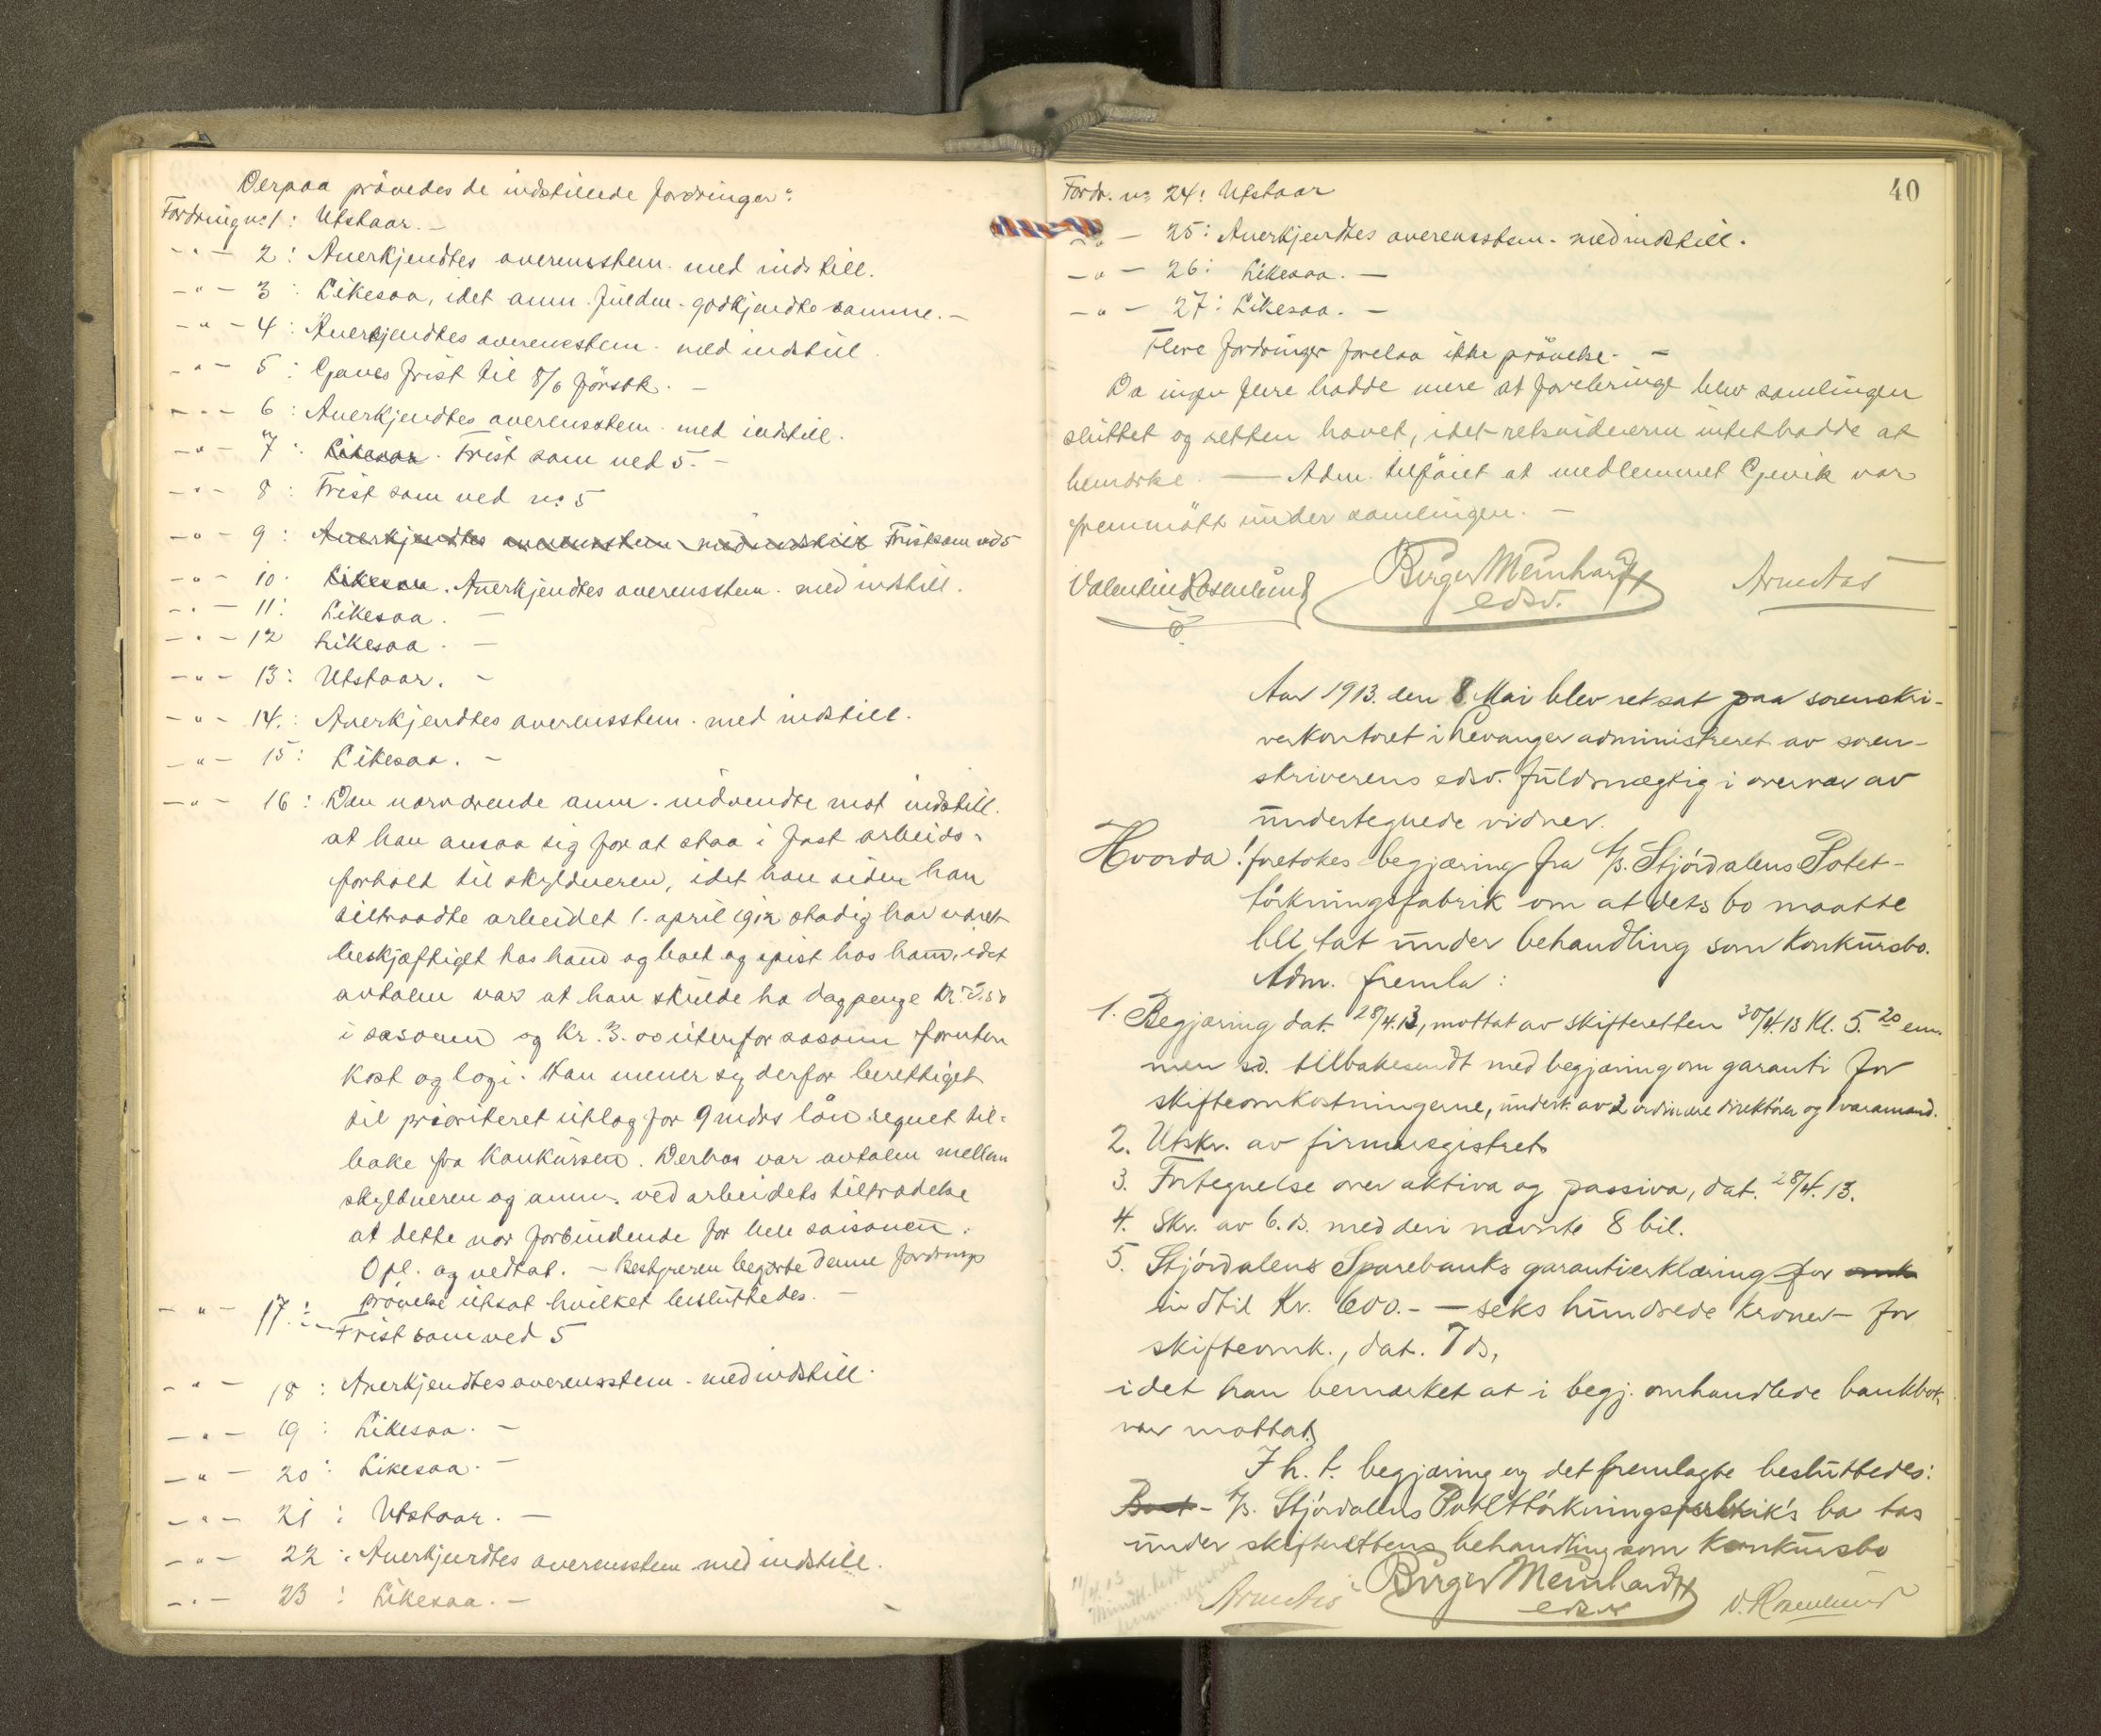 Derpaa prövedes de indstillede fordringer:
Fordring no: 1: Utstaar. —
— " — 2: Anerkjendtes overensstem. med indstill.
— " — 3: Likesaa, idet anm. fuldm. godkjendte samme. —
— " — 4: Anerkjendtes overensstem. med indstill
— " — 5: Gaves frist til 8/6 förstk. —
— " — 6: Anerkjendtes overensstem. med indstill.
— " — 7: Likesaa. Frist som ved 5. —
— " — 8: Frist som ved no: 5
— " — 9: Anerkjendtes overensstem. med indstill Frist som ved 5
— " — 10. Likesaa. Anerkjendtes overensstem. med indstill.
— " — 11: Likesaa. —
— " — 12 Likesaa. —
— " — 13: Utstaar. —
— " — 14.: Anerkjendtes overensstem. med indstill.
— " — 15: Likesaa. —
— " — 16: Den nærværende anm. indvendte mot indstill.
at han ansaa sig for at staa i fast arbeids-
forhold til skyldneren, idet han siden han
tiltraadte arbeidet 1. april 1912 stadig har været
beskjæftiget hos ham og boet og spist hos ham, idet
avtalen var at han skulde ha dagpenge kr.
i sasonen og kr. 3.00 utenfor sasonen foruten
kost og logi. Han mener sig derfor berettiget
til prioriteret utlæg for 9 mdrs lön regnet til-
bake fra konkursen. Derhos var avtalen mellem
skyldneren og anm. ved arbeidets tiltrædelse
at dette var forbindende for hele saisonen.
Opl. og vedtat. — Bestyreren begjærte denne fordrings
prövelse utsat hvilket besluttedes. —
— " — 17.: — Frist som ved 5
— " — 18: Anerkjendtes overensstem. med indstill.
— " — 19: Likesaa. —
— " — 20: Likesaa. —
— " — 21: Utstaar. —
— " — 22: Anerkjendtes overensstem. med indstill.
— " — 23: Likesaa. —
40
Fordr. no: 24: Utstaar
— " — 25: Anerkjendtes overensstem. med indstill.
— " — 26: Likesaa. —
— " — 27: Likesaa. —
Flere fordringer forelaa ikke prövelse. —
Da ingen flere hadde mere at forebringe blev samlingen
sluttet og retten hævet, idet retsvidnerne intet hadde at
bemerke. — Adm. tilföiet at medlemmet Gjevik var
fremmött under samlingen. —
Valentin Rosenlund Birger Meinhardt
edsv.
Aar 1913. den 8 Mai blev ret sat paa sorenskri-
verkontoret i Levanger administreret av soren-
skriverens edsv. fuldmægtig i overvær av
undertegnede vidner.
Hvorda: foretokes begjæring fra A/S. Stjördalens Potet-
törkningsfabrik om at dets bo maatte
bli tat under behandling som konkursbo.
Adm. fremla:
1. Begjæring dat. 28/4.13, mottat av skifteretten 30/4.13 Kl. 5.20 em.
men s.d. tilbakesendt med begjæring om garanti for
skifteomkostningerne, underk. av 2 ordinære direktörer og 1 varamand.
2. Utskr. av firmaregistret
3. Fortegnelse over aktiva og passiva, dat. 28/4.13.
4. Skr. av 6. ds. med deri nævnte 8 bil.
5. Stjördalens Sparebanks garantierklæring for omk
indtil Kr. 600.- — seks hundrede kroner — for
skifteomk., dat. 7 ds,
idet han bemærket at i begj. omhandlede bankbok
var mottat.
I h. t. begjæring og det fremlagte besluttedes:
Boet - A/S. Stjördalens Potettörkningsfabrik's bo tas
under skifterettens behandling som konkursbo
Birger Meinhardt
edsv
V. Rosenlund